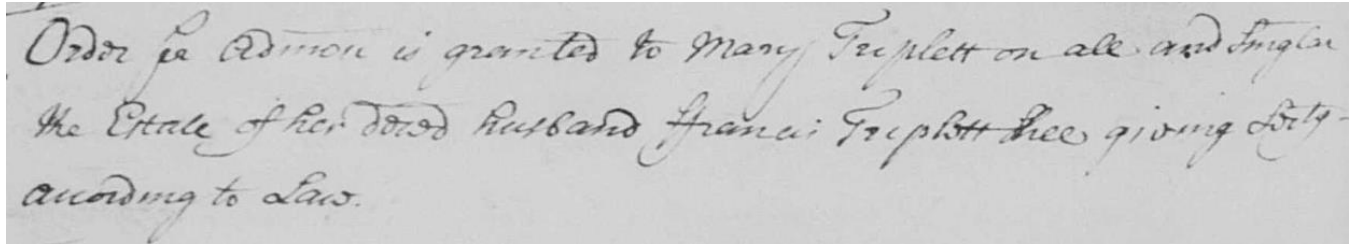 Order for Admon is granted to Mary Triplett on all and Singlar
the Estate of her deced husband ffrancis Triplett Shee giving Secty
according to Law.